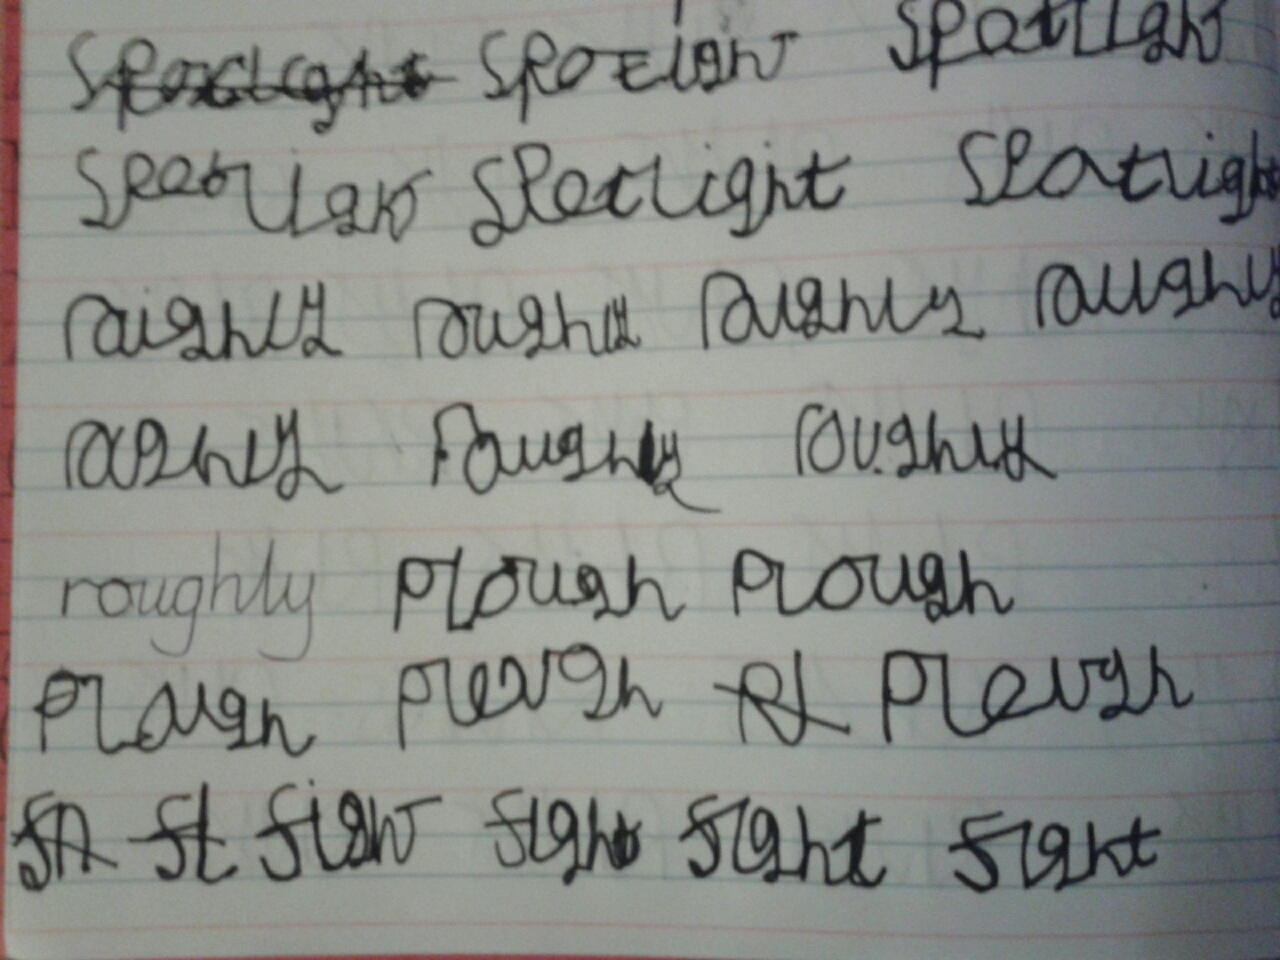 Spotlight Spotlight
Spotlight Spotlight Spotlight
roughly roughly roughly roughly
roughly roughly roughly
roughly Plough Plough
Plough Plough Plough
fight fight fight fight